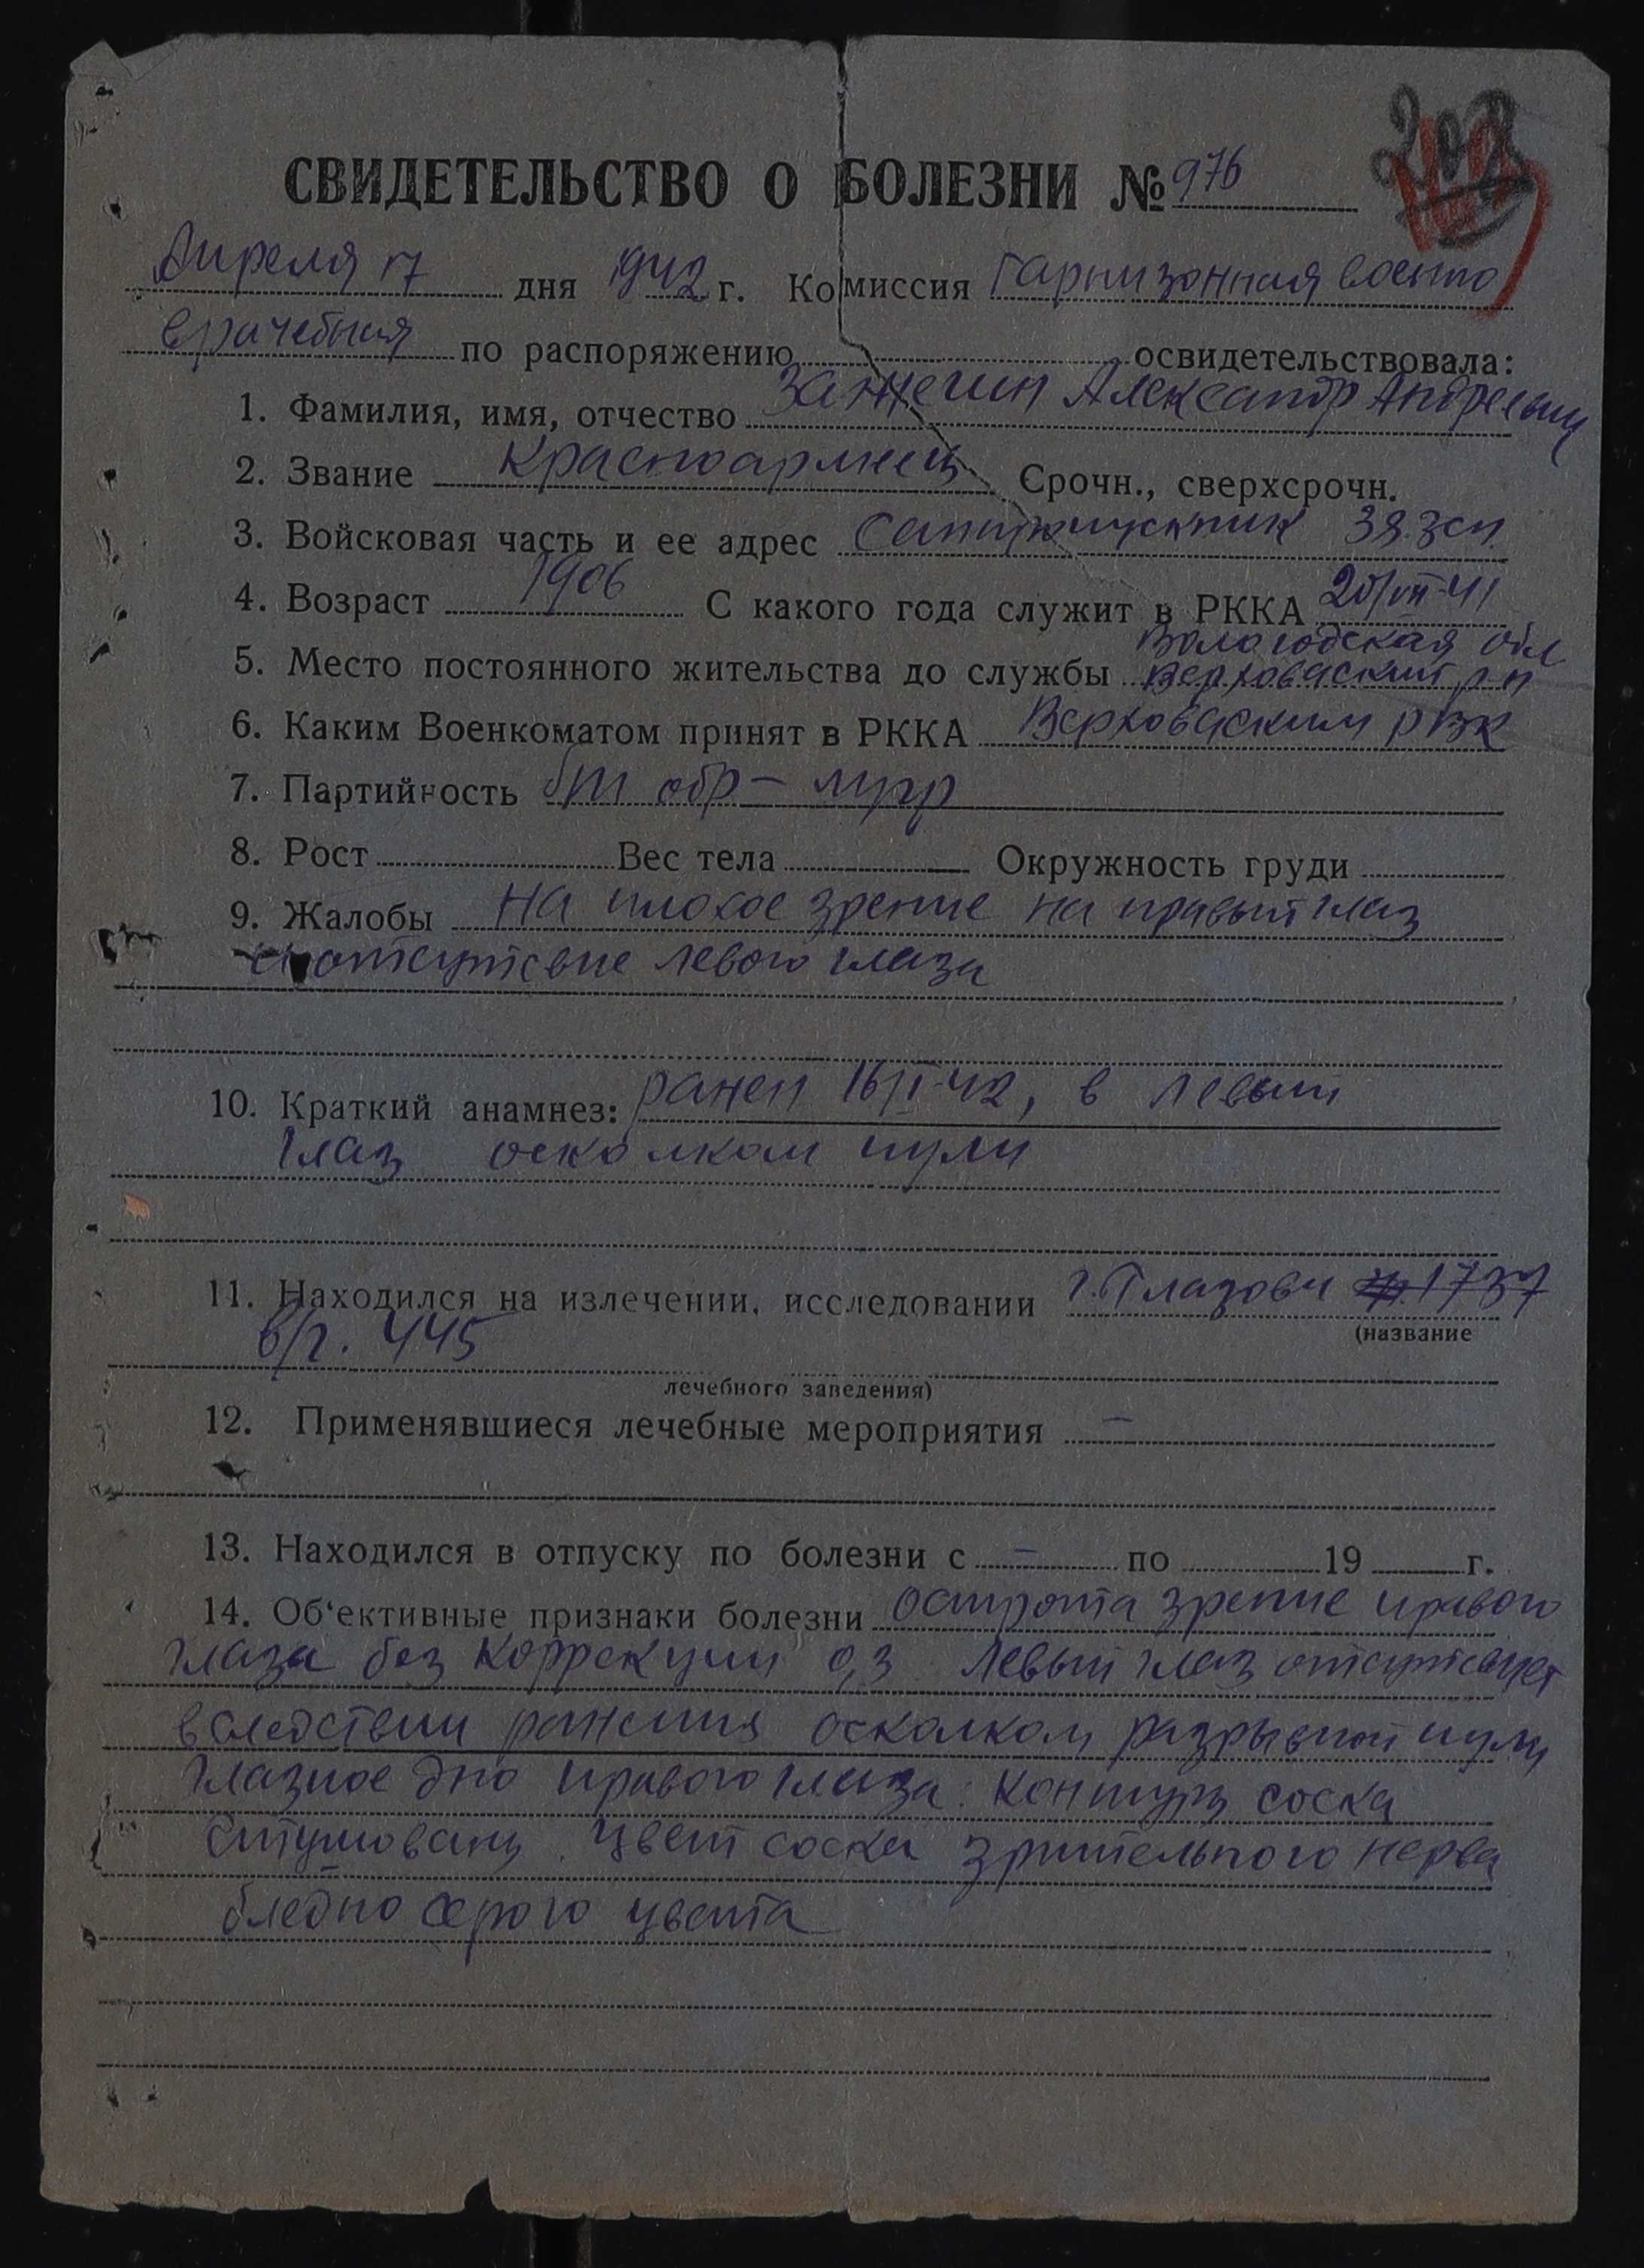 СВИДЕТЕЛЬСТВО О БОЛЕЗНИ № 976
Апреля 17 дня 1942 г. Комиссия Гарнизонная военно
врачебная по распоряжению освидетельствовала:
1. Фамилия, имя, отчество Зажегин Александр Андреевич
2. Звание Красноармеец Срочн., сверхсрочн.
3. Войсковая часть и ее адрес 38 зсп.
4. Возраст 1906 С какого года служит в РККА /VII-41
Вологодская обл
5. Место постоянного жительства до службы Верховаский р н
6. Каким Военкоматом принят в РККА Верховаским рвк
7. Партийность б/п обр –
8. Рост Вес тела Окружность груди
9. Жалобы на плохое зрение на правый глаз
и отсутсвие левого глаза
10. Краткий анамнез: ранен 16/I-42, в левый
глаз осколком пули
11. Находился на излечении, исследовании г. Глазови 1737
(название
в/г. 445
лечебного заведения)
12. Применявшиеся лечебные мероприятия –
13. Находился в отпуску по болезни с – по 19 г.
14. Об'ективные признаки болезни Острота зрение правого
глаза без коррекции 0,3 Левый глаз отсутсвует
вследствии ранения осколком разрывной пули
Глазное дно правого глаза: контуры соска
стушованы. цвет соска зрительного нерва
бледно серого цвета